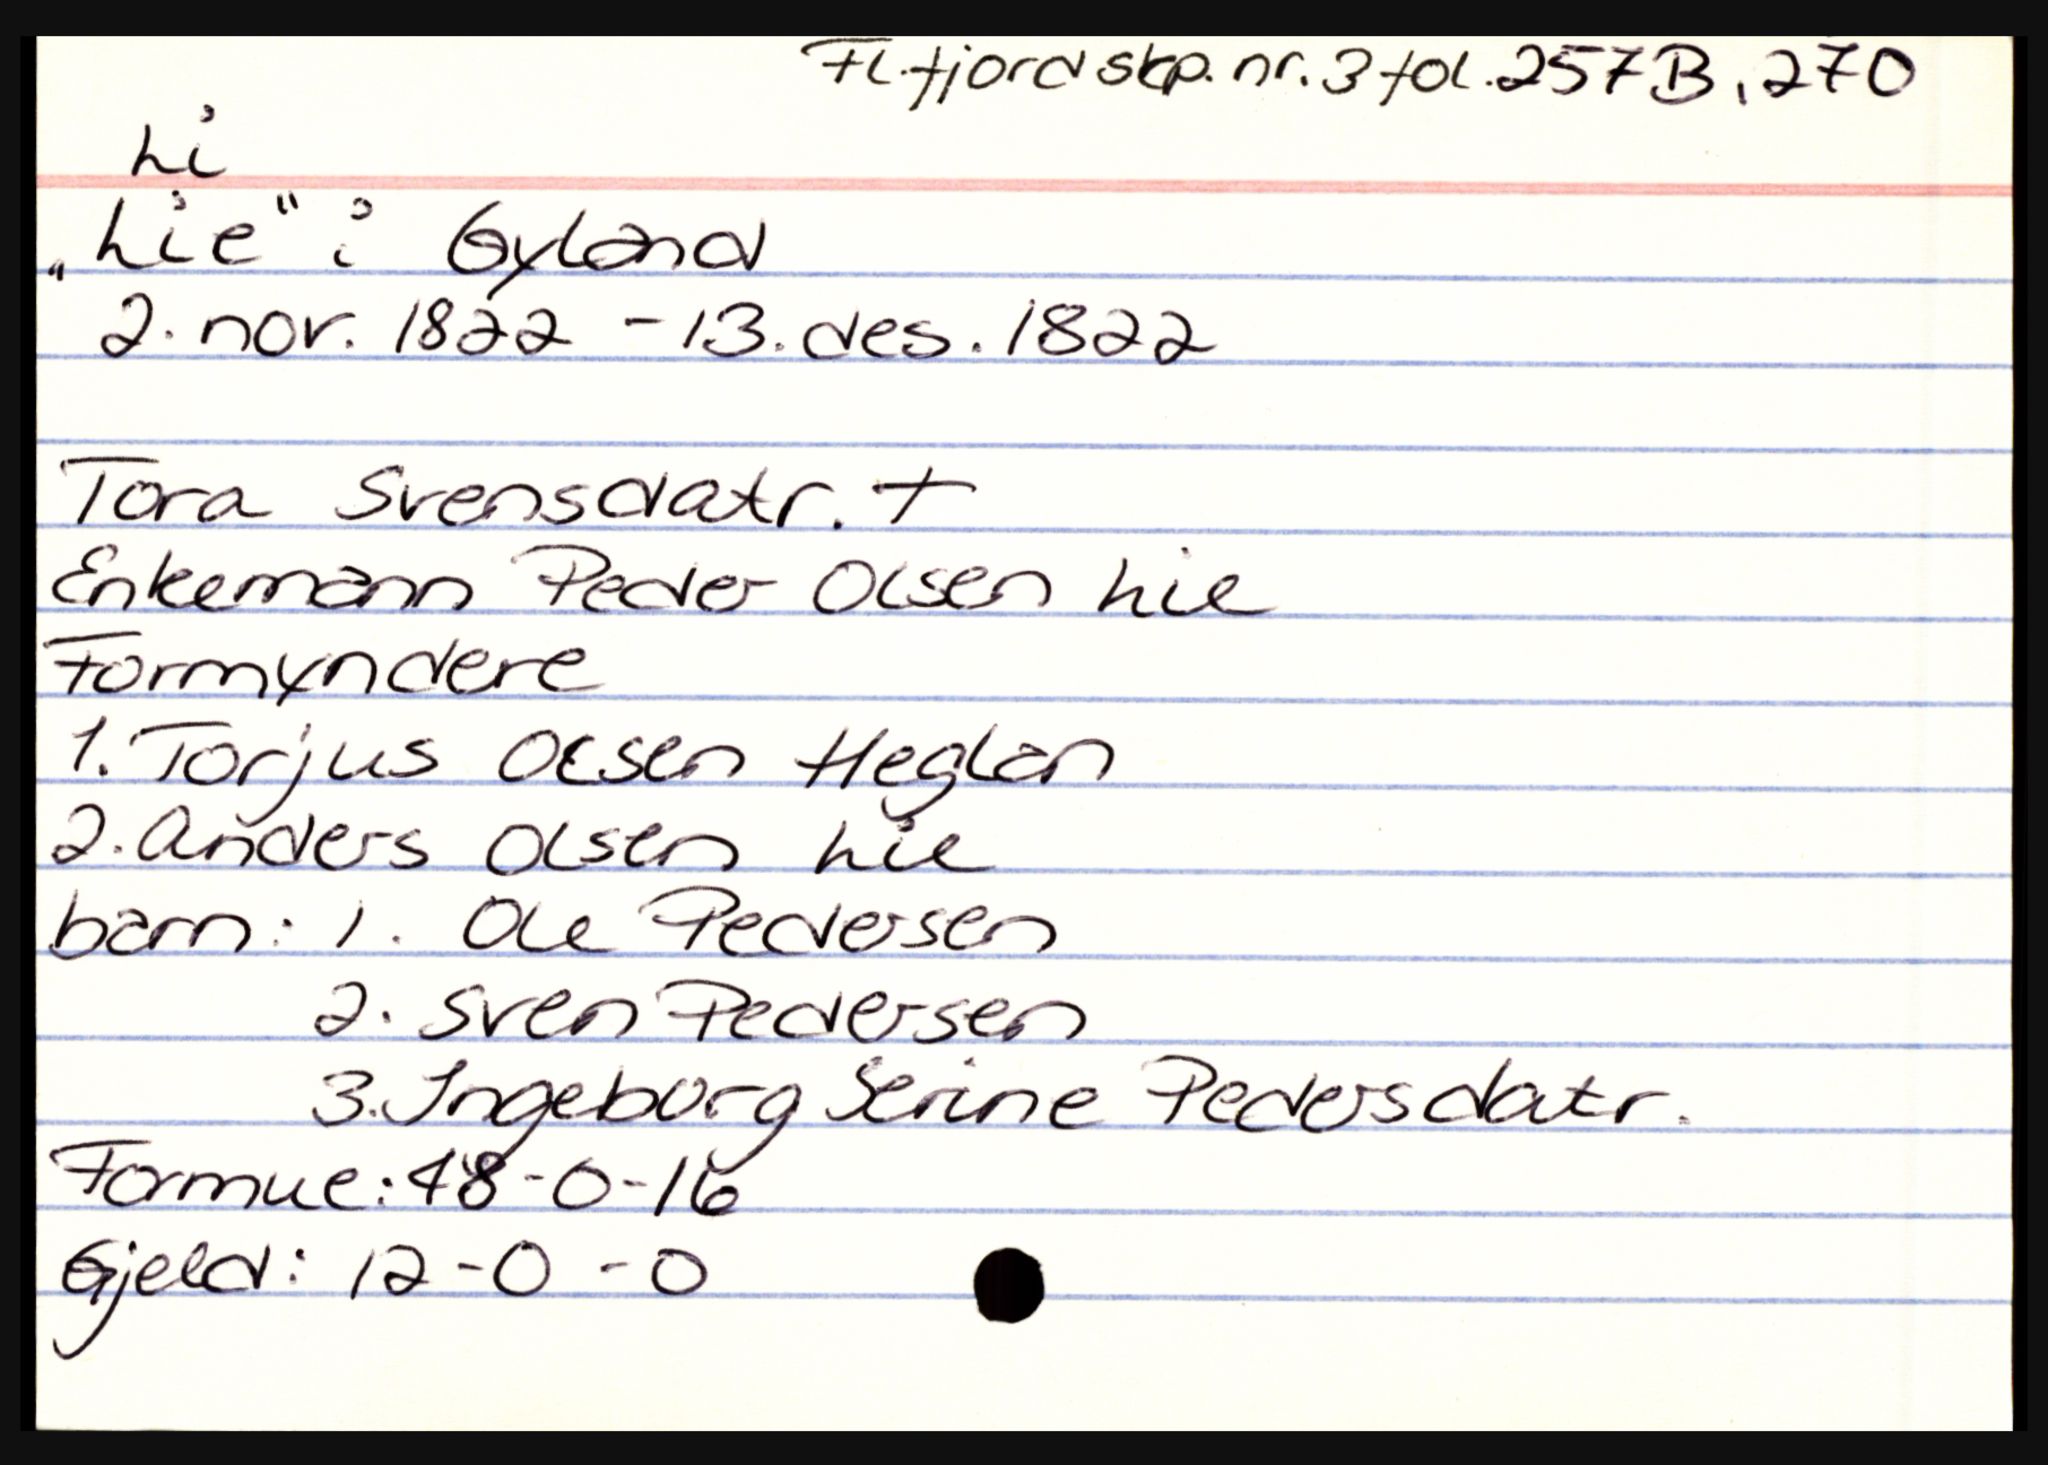 Fl.fjord skp. nr. 3 fol. 257B, 270
Li
"Lie" i Gyland
2. nov. 1822 - 13. des. 1822
Tora Svensdatr. +
Enkemann Peder Olsen Lie
Formyndere
1. Torjus Olsen Heglan
2. Anders Olsen Lie
barn: 1. Ole Pedersen
2. Sven Pedersen
3. Ingeborg Serine Pedersdatr.
Formue: 48-0-16
Gjeld: 12-0-0